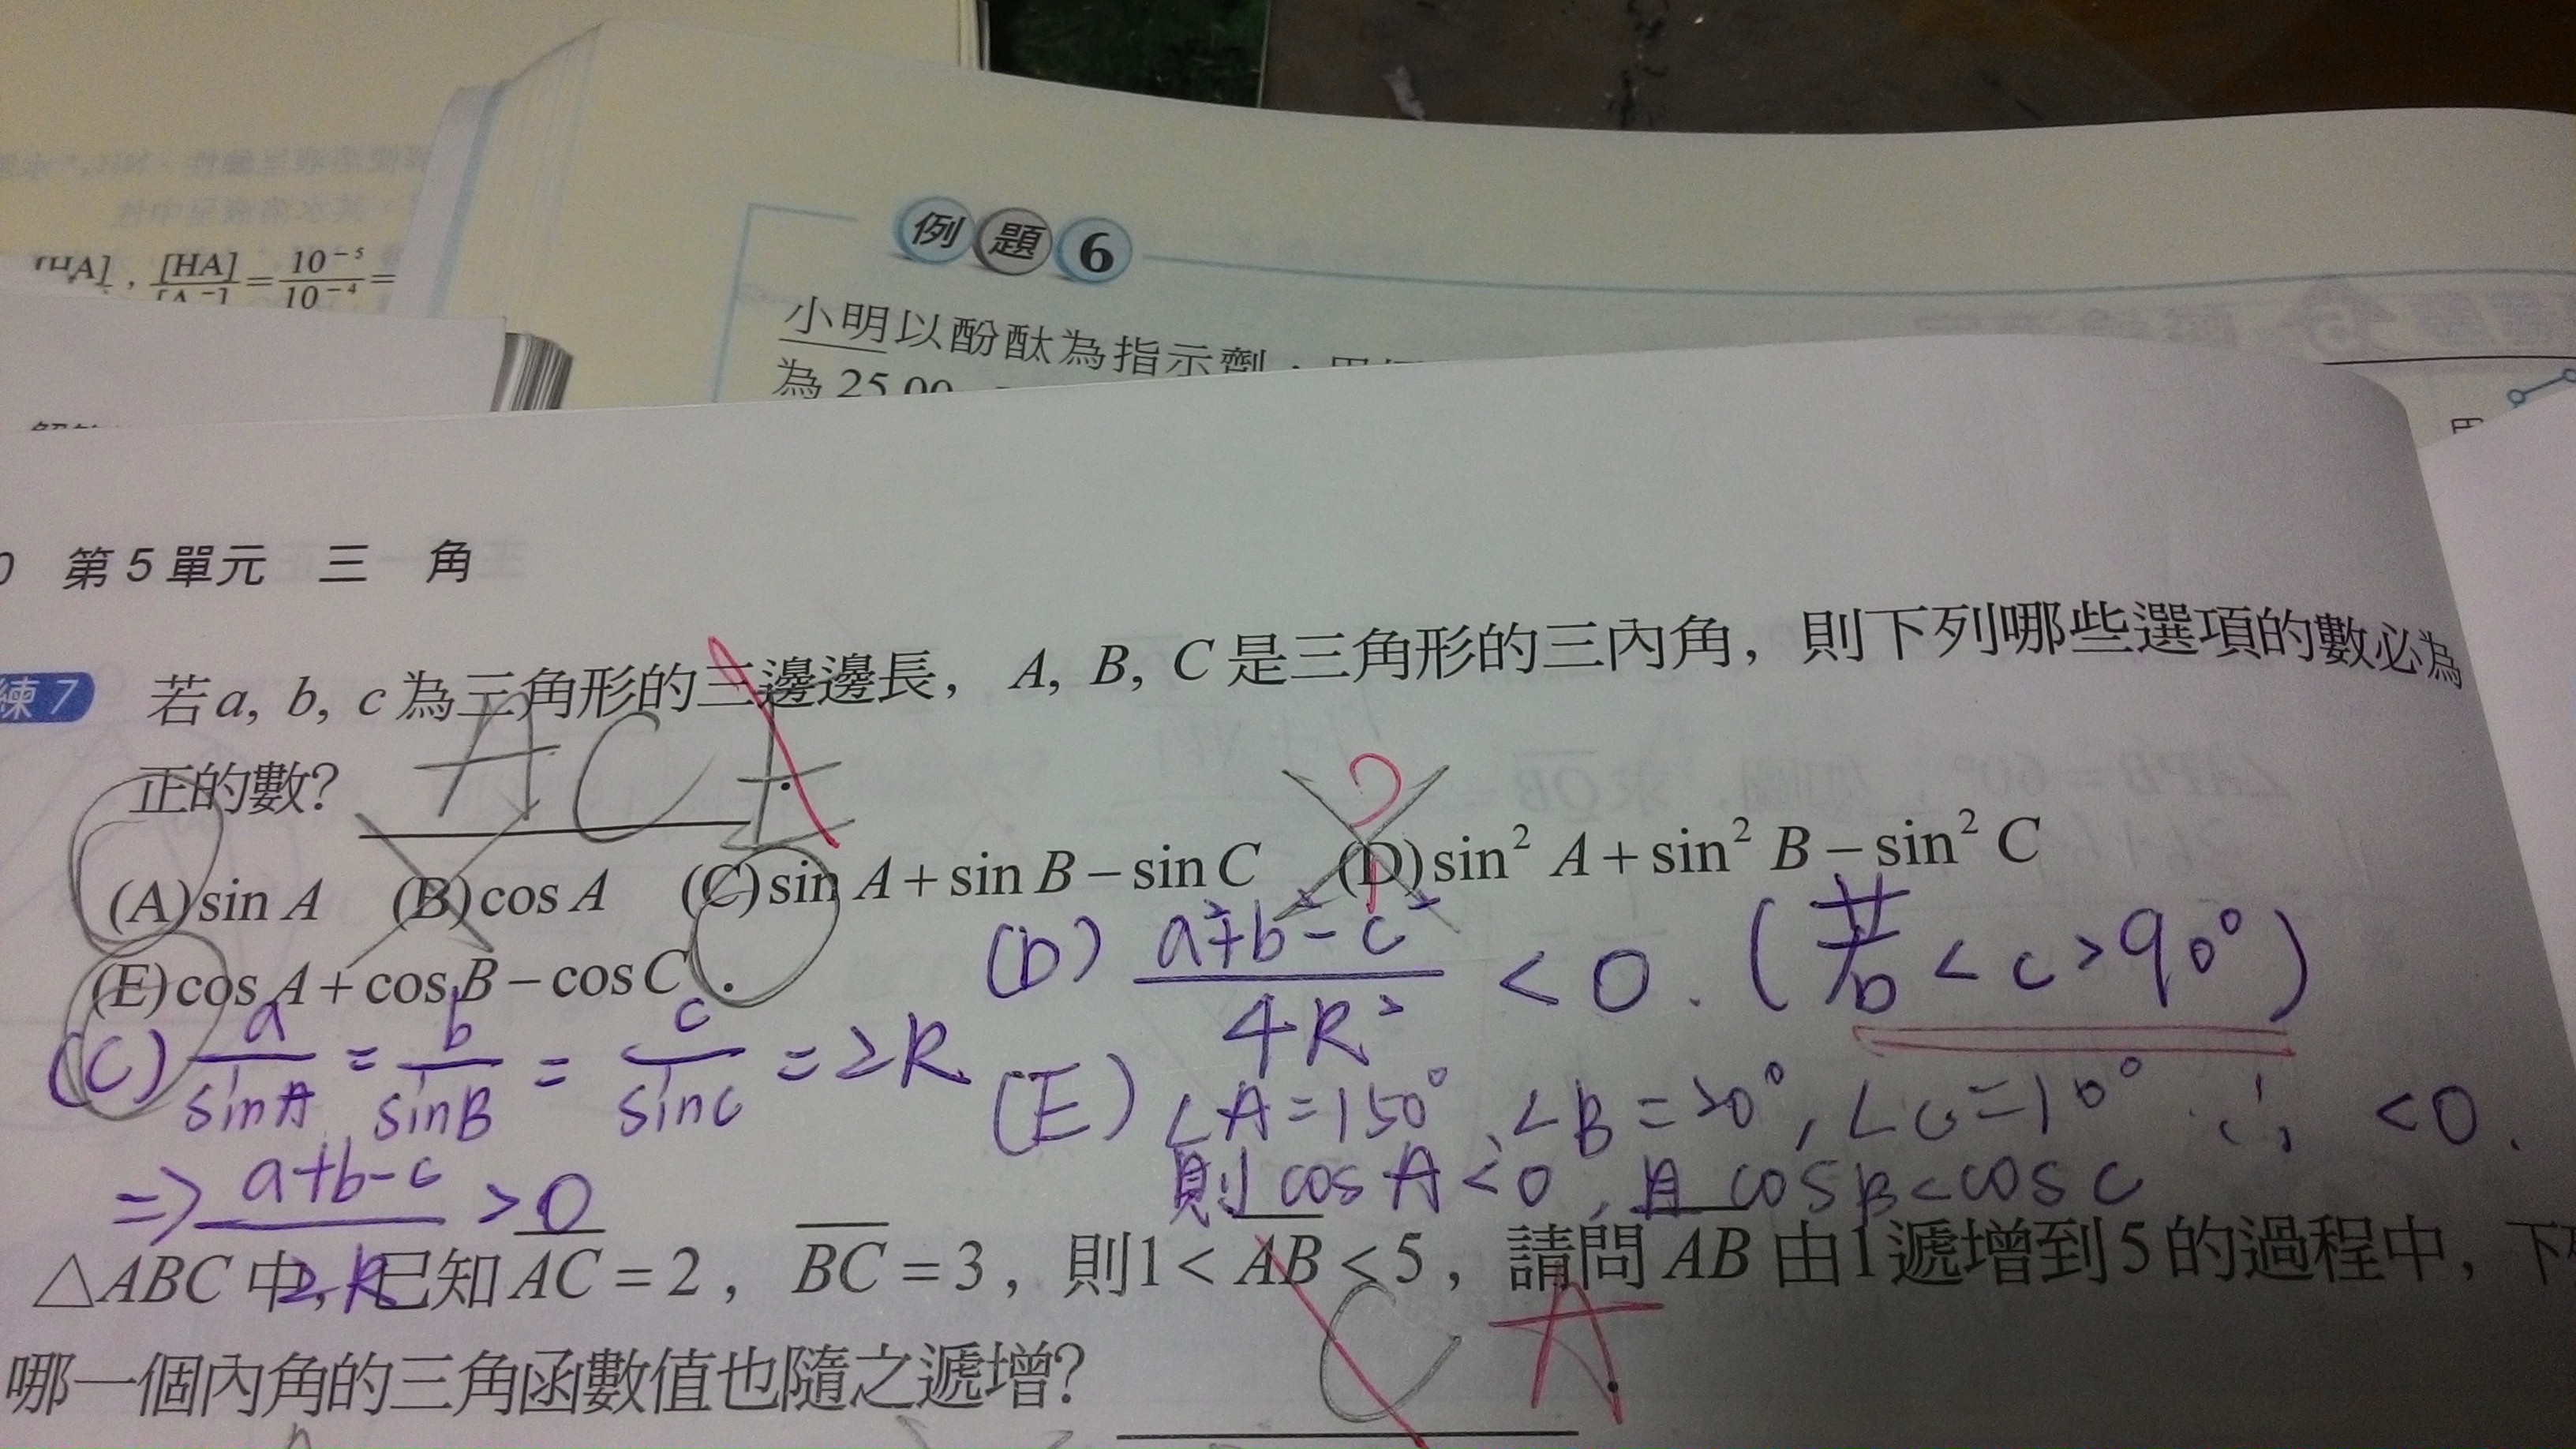 [HA] , [HA]/[A⁻] = 10⁻⁵/10⁻⁴ =
例題6
小明以酚酞為指示劑，
為 25.00
第5單元 三 角
練7 若a, b, c為三角形的三邊邊長， A, B, C是三角形的三內角，則下列哪些選項的數必為
正的數? A C E .
(A)sin A (B)cos A (C)sin A+sin B−sin C (D)sin² A+sin² B−sin² C
(E)cos A+cos B−cos C .
(D) a²+b²−c²/4R² < 0 . (若 ∠C>90°)
(C) a/sinA = b/sinB = c/sinC = 2R
(E) ∠A=150°, ∠B=20°, ∠C=10° ∴ <0.
則 cos A<0, 且 cosB<cosC
⇒ a+b−c/2R >0
△ABC中，已知AC=2，BC=3，則1<AB<5，請問AB由1遞增到5的過程中，下列
哪一個內角的三角函數值也隨之遞增? C A .